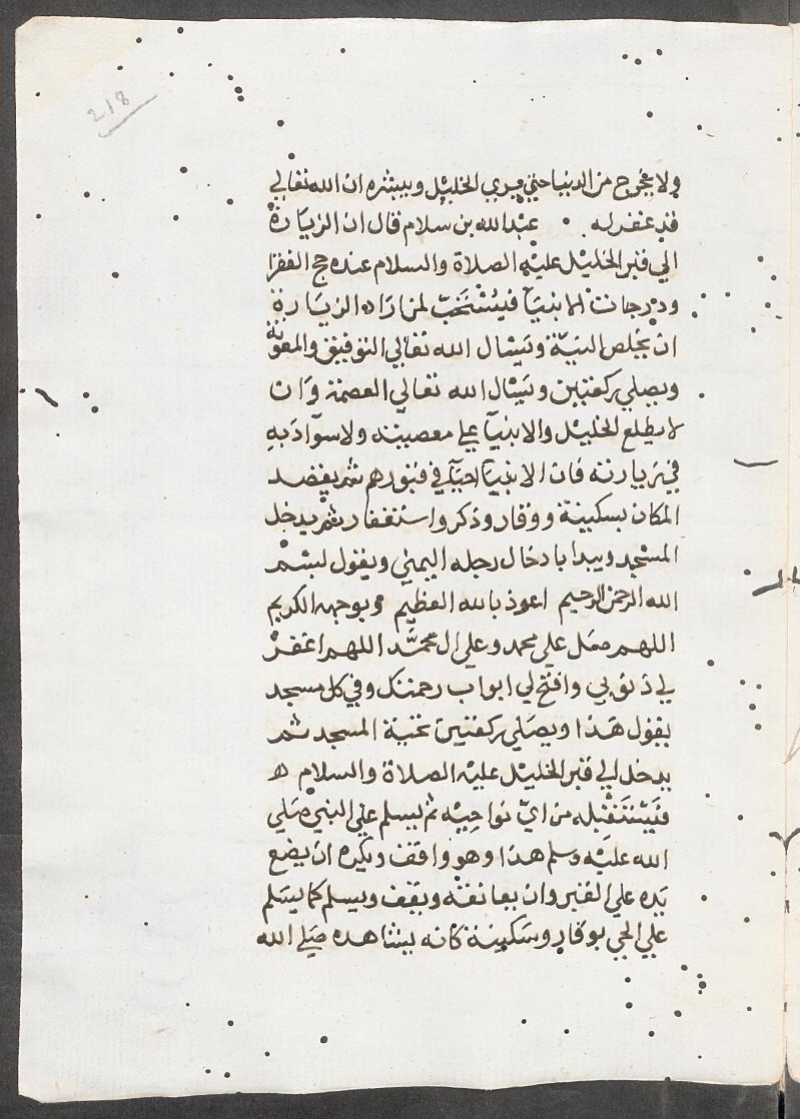 218
ولا يخرج من الدنيا حتي يري الخليل ويبشره ان الله تعالي
قد غفر له . عبد الله بن سلام قال ان الزيارة
الي قبر الخليل عليه الصلاة والسلام عنده حج الفقرا
ودرجات الانبيآ فيستحبّ لمن اراد الزيارة
ان يخلص النيّة ويسال الله تعالي التوفيق والمعونة
ويصلي ركعتين ويسال الله تعالي العصمة وان
لا يطلع الخليل والانبيآ علي معصيته ولا سوآ ادبه
في زيارته فان الانبيآ احيآ في قبورهم ثم يقصد
المكان بسكينة ووقار وذكر واستغفار ثم يدخل
المسجد ويبدا بادخال رجله اليمني ويقول بسم
الله الرحمن الرحيم اعوذ بالله العظيم وبوجهه الكريم
اللهم صل علي محمد وعلي ال محمّد اللهم اغفر
لي ذنوبي وافتح لي ابواب رحمتك وفي كل مسجد
يقول هذا ويصلي ركعتين تحية المسجد ثم
يدخل الي قبر الخليل عليه الصلاة والسلام ه
فيستقبله من ايّ نواحيه ثم يسلم علي النبي صلي
الله عليه وسلم هذا وهو واقف ويكره ان يضع
يده علي القبر وان يعانقه ويقف ويسلم كما يسلم
علي الحي بوقار وسكينة كانه يشاهده صلي الله